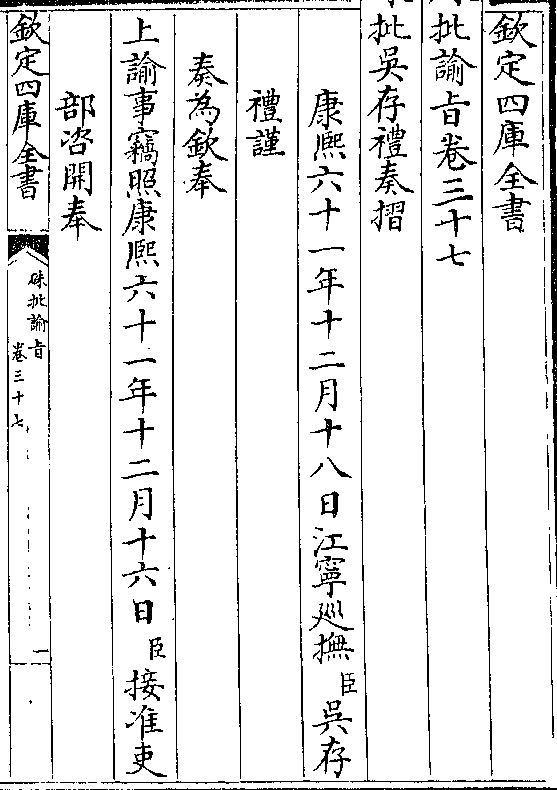 欽定四庫全書
批諭旨卷三十七
批吳存禮奏摺
康熙六十一年十二月十八日江寧廵撫臣吳存
禮謹
奏為欽奉
上諭事竊照康熙六十一年十二月十六日臣接准吏
部咨開奉
欽定四庫全書
硃批諭旨
卷三十七
一